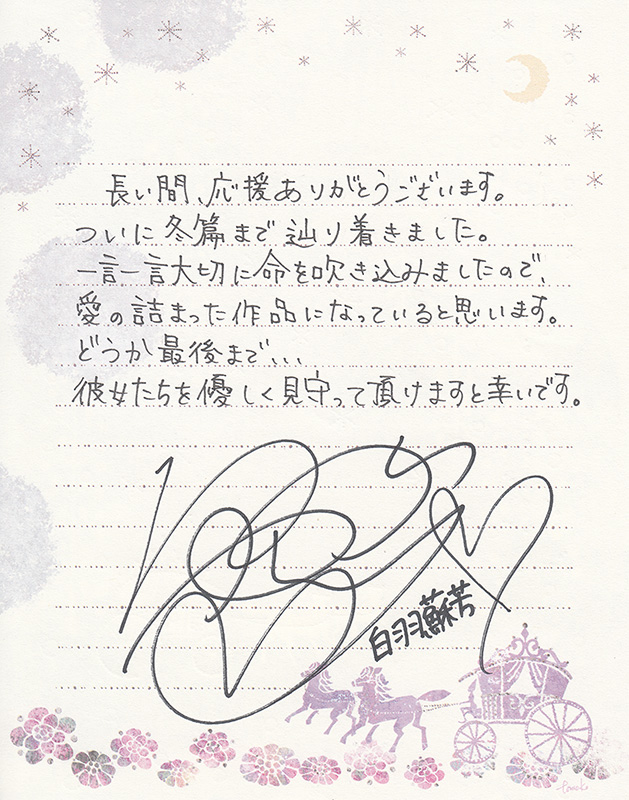 長い間、応援ありがとうございます。
ついに冬篇まで辿り着きました。
一言一言大切に命を吹き込みましたので、
愛の詰まった作品になっていると思います。
どうか最後まで...
彼女たちを優しく見守って頂けますと幸いです。
白羽蘇芳